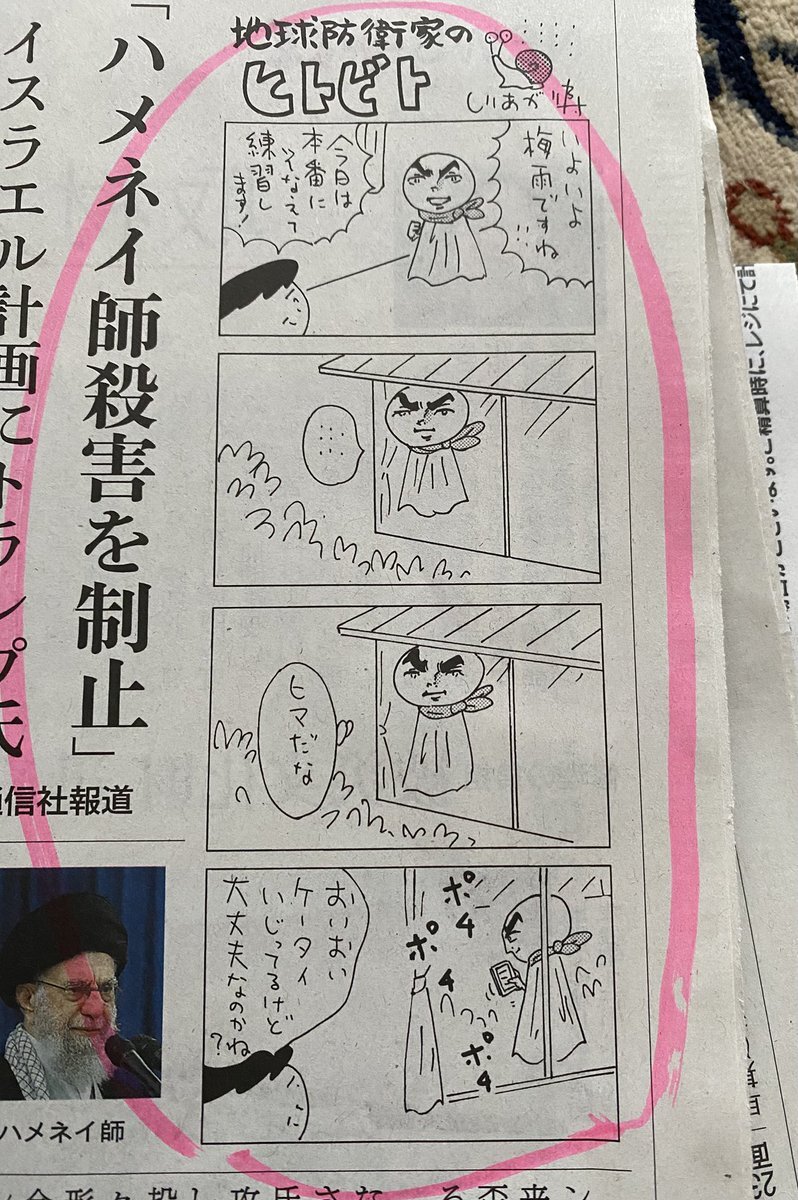 地球防衛家の
ヒトビト
しりあがり寿
いよいよ
梅雨ですね
今日は
本番に
そなえて
練習し
ます!
……
ヒマだな
ポチ
ポチ
ポチ
おいおい
ケータイ
いじってるけど
大丈夫なのかね?
「ハメネイ師殺害を制止」
イスラエル計画にトランプ氏
通信社報道
ハメネイ師